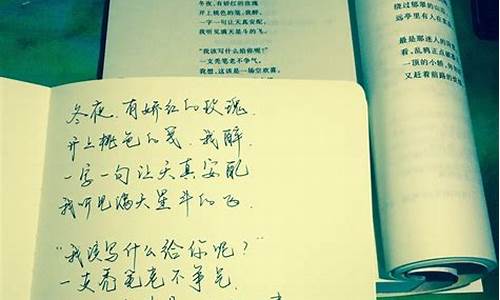 冬夜,有娇红的玫瑰
开上桃色的笺,我醉,
一字一句让天真安配,
我听见满天星斗的飞。
“我该写什么给你呢?”
一支秃笔老不争气。
我想,这该是一场空欢喜。
远亭里有人在
最是那迷人的
看,乱鸦正点破
一顶的小轿,
又赶着前路的
冬夜,有娇红的玫瑰,
开上桃色的笺,我醉,
一字一句让天真安配
我听见满天星斗的飞,
“我该写什么给你呢?”
一支秃笔老不争气,